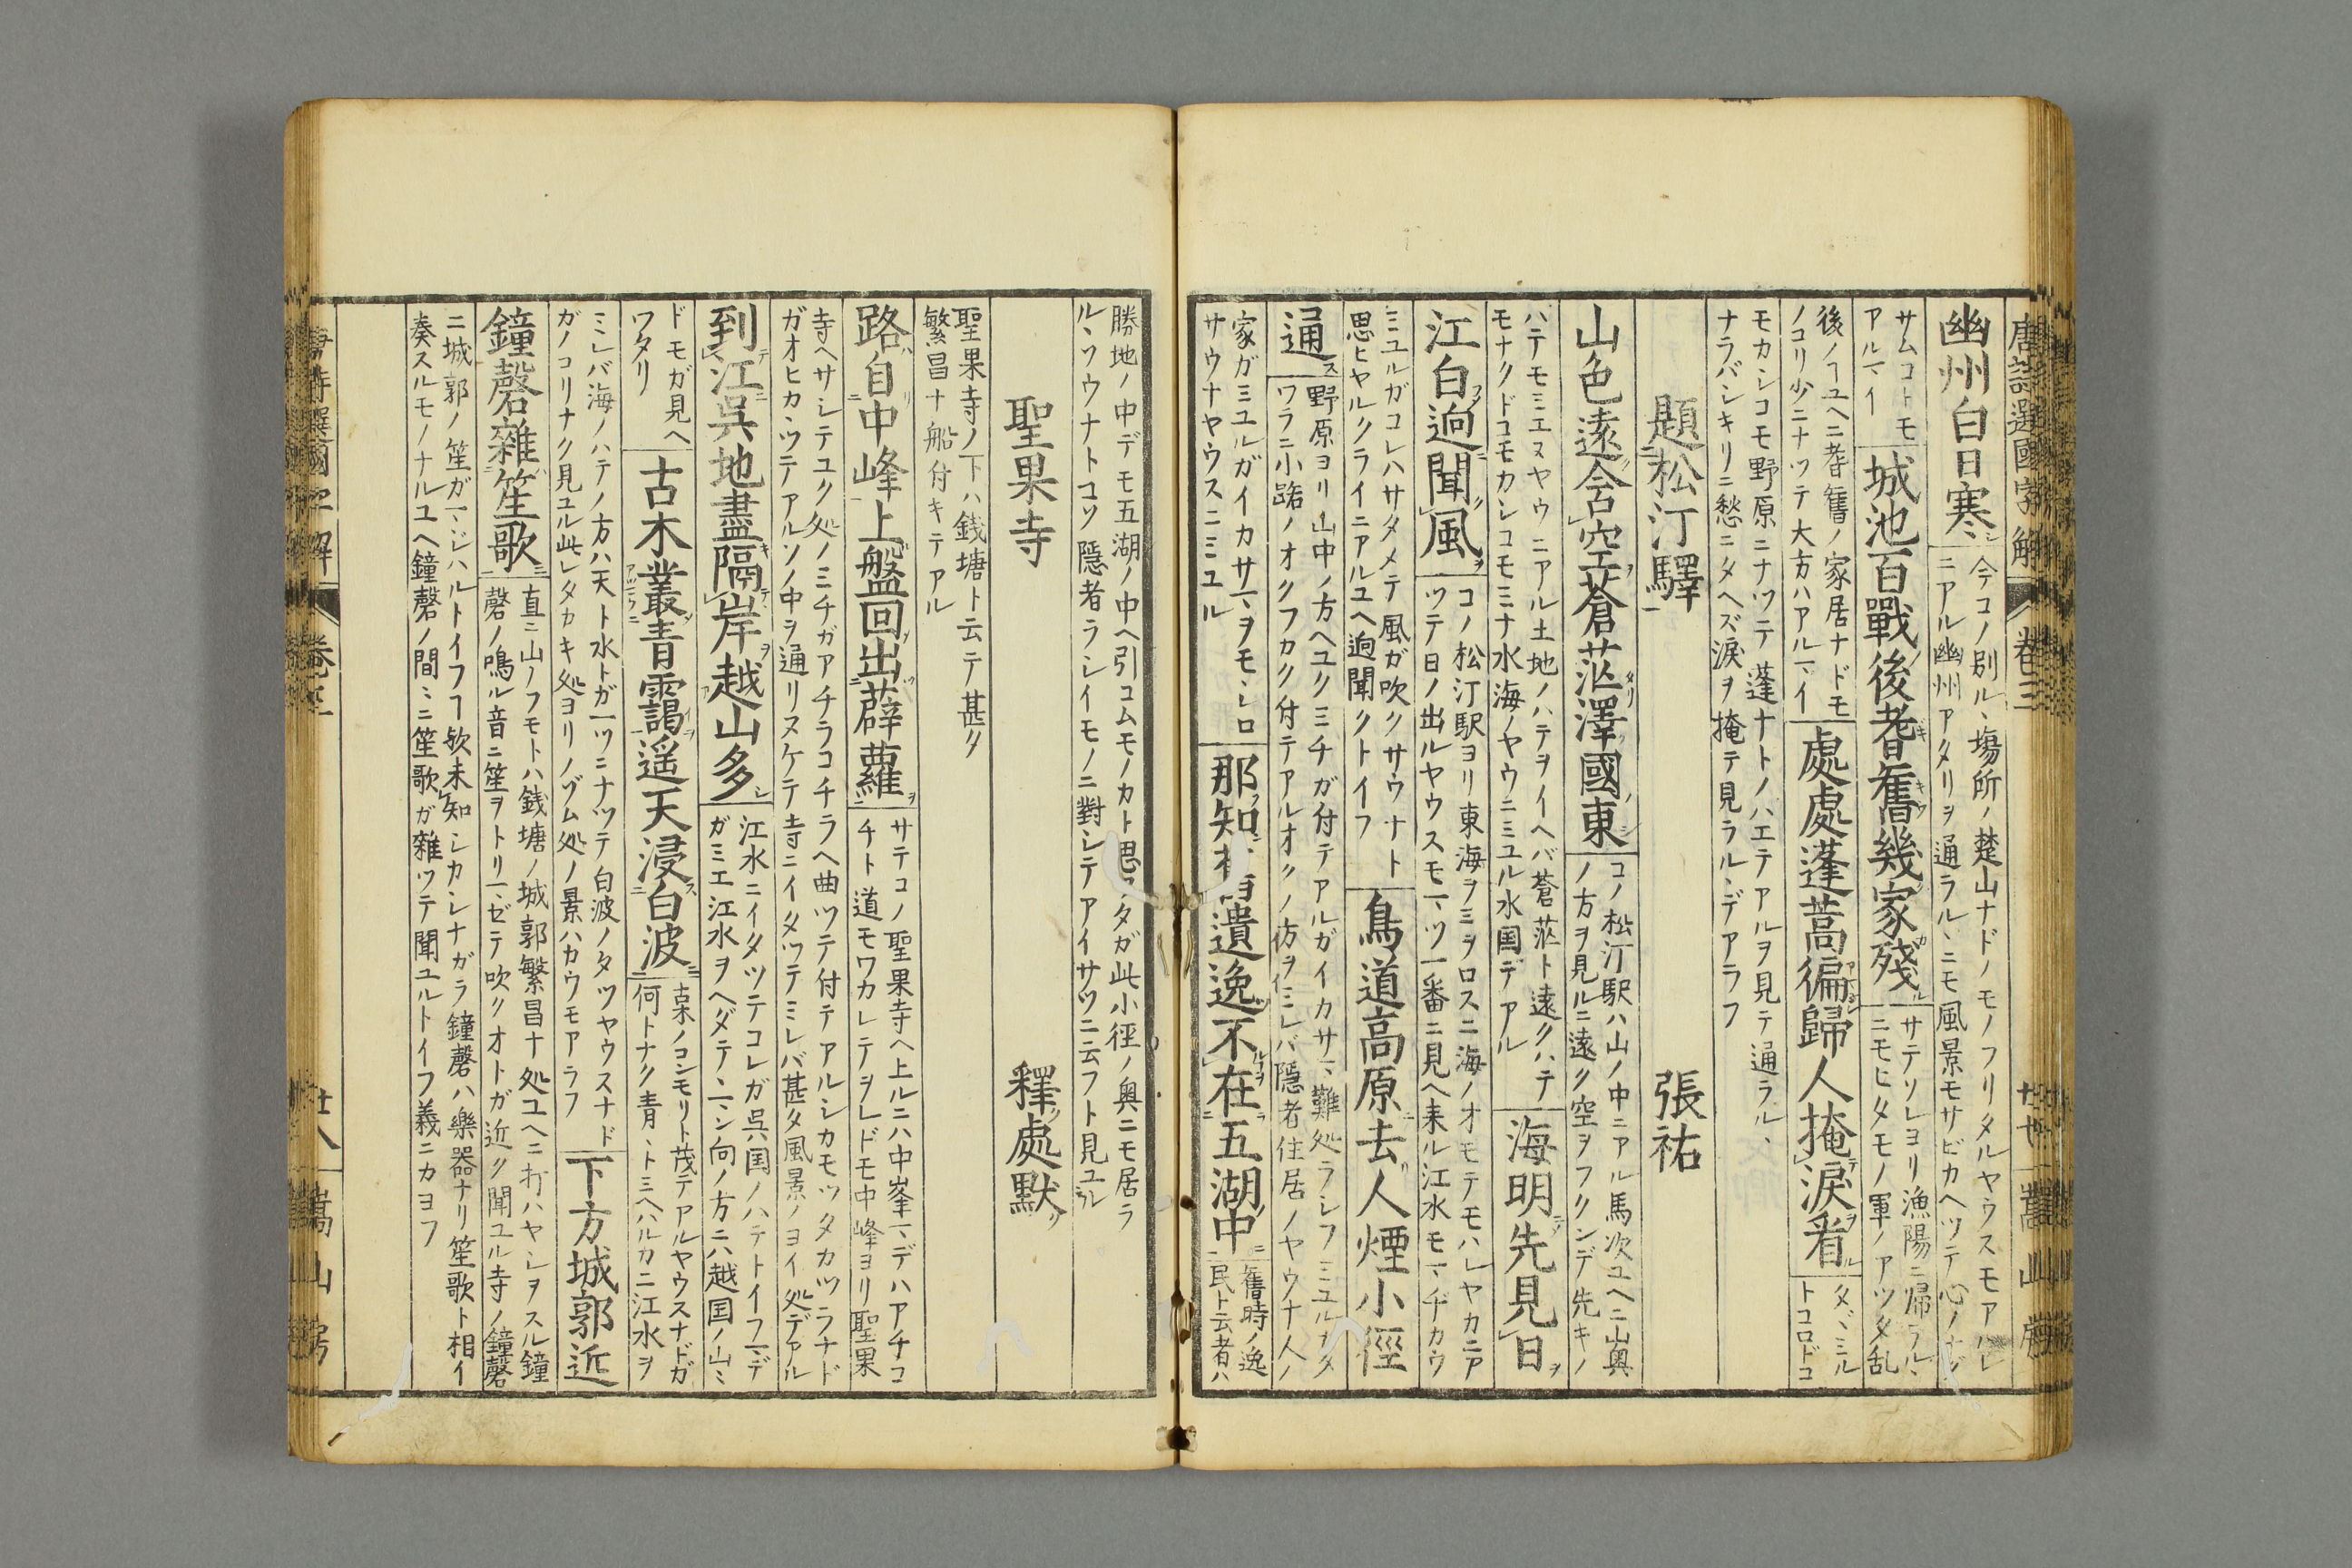 唐詩選國字解 卷三 廿七 嵩山房
幽州白日寒 今コノ別ル、場所ノ楚山ナドノモノフリタルヤウスモアハレ
ニアル幽州アタリヲ通ラル、ニモ風景モサビカヘツテ心ノ
サムコトモ
アルマイ
城池百戰後耆舊幾家殘 サテソレヨリ漁陽ニ帰ラル、
ニモヒタモノ軍ノアツタ乱
後ノヿユヘニ耆舊ノ家居ナドモ
ノコリ少ニナツテ大方ハアルマイ
處處蓬蒿徧歸人掩淚看 タヾミル
トコロドコ
モカシコモ野原ニナツテ蓬ナトノハエテアルヲ見テ通ラル、
ナラバシキリニ愁ニタヘズ涙ヲ掩テ見ラル、デアラフ
題松汀驛 張祐
山色遠含空蒼茫澤國東 コノ松汀駅ハ山ノ中ニアル馬次ユヘニ山奥
ノ方ヲ見ルニ遠ク空ヲフクンデ先キノ
ハテモミエヌヤウニアル土地ノハテヲイヘバ蒼茫ト遠クハテ
モナクドコモカシコモミナ水海ノヤウニミユル水国デアル
海明先見日
江白迥聞風 コノ松汀駅ヨリ東海ヲミヲロスニ海ノオモテモハレヤカニア
ツテ日ノ出ルヤウスモマヅ一番ニ見ヘ来ル江水モマヂカウ
ミユルガコレハサタメテ風ガ吹クサウナト
思ヒヤルクライニアルユヘ迥聞クトイフ
鳥道高原去人煙小徑
通 野原ヨリ山中ノ方ヘユクミチガ付テアルガイカサマ難処ラシフミユルカタ
ワラニ小路ノオクフカク付テアルオクノ仿ヲミレバ隱者住居ノヤウナ人ノ
家ガミユルガイカサマヲモシロ
サウナヤウスニミユル
那知舊遺逸不在五湖中 舊時ノ逸
民ト云者ハ
勝地ノ中デモ五湖ノ中ヘ引コムモノカト思フタガ此小徑ノ奥ニモ居ラ
ル、ソウナトコソ隱者ラシイモノニ對シテアイサツニ云フト見ユル
聖果寺 釋處默
聖果寺ノ下ハ銭塘ト云テ甚タ
繁昌ナ船付キテアル
路自中峰上盤回出薜蘿 サテコノ聖果寺ヘ上ルニハ中峯マデハアチコ
チト道モワカレテヲレドモ中峰ヨリ聖果
寺ヘサシテユク処ノミチガアチラコチラヘ曲ツテ付テアルシカモツタカツラナド
ガオヒカ、ツテアルソノ中ヲ通リヌケテ寺ニイタツテミレバ甚タ風景ノヨイ処デアル
到江吳地盡隔岸越山多 江水ニイタツテコレガ呉国ノハテトイフマデ
ガミエ江水ヲヘダテマシ向ノ方ニハ越国ノ山ミ
ドモガ見ヘ
ワタリ
古木叢青靄遙天浸白波 古木ノコンモリト茂テアルヤウスナドガ
何トナク青、ト三ヘハルカニ江水ヲ
ミレバ海ノハテノ方ハ天ト水トガ一ツニナツテ白波ノタツヤウスナド
ガノコリナク見ユル此レタカキ処ヨリノゾム処ノ景ハカウモアラフ
下方城郭近
鐘磬雜笙歌 直ニ山ノフモトハ銭塘ノ城郭繁昌ナ処ユヘニ打ハヤシヲスル鐘
磬ノ鳴ル音ニ笙ヲトリマゼテ吹クオトガ近ク聞ユル寺ノ鐘磬
ニ城郭ノ笙ガマジハルトイフヿ欤未知シカシナガラ鐘磬ハ樂器ナリ笙歌ト相イ
奏スルモノナルユヘ鐘磬ノ間ミニ笙歌ガ雜ツテ聞ユルトイフ義ニカヨフ
唐詩選國字解 卷三 廿八 嵩山房